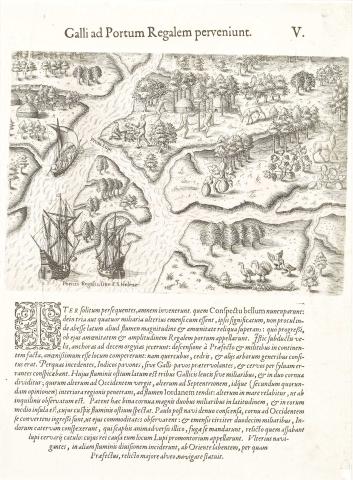 Galli ad Portum Regalem perveniunt. V.
Portus Regalis sive S. Helenæ
ITER solitum persequentes, amnem invenerunt, quem Conspectu bellum nuncuparunt:
dein tria aut quatuor miliaria ulterius emensi cum essent, ipsis significatum, non procul in-
de abesse latum aliud flumen magnitudine & amœnitate reliqua superans: quò progressi,
ob ejus amœnitatem & amplitudinem Regalem portum appellarunt. Istic subductis ve-
lis, anchoras ad decem orgyas jecerunt: descensione à Præfecto & militibus in continen-
tem facta, amœnissimum esse locum compererunt: nam quercubus, cedris, & aliis arborum generibus consi-
tus erat. Per quas incedentes, Indicos pavones, sive Gallo pavos prætervolantes, & cervos per silvam er-
rantes conspiciebant. Hujus fluminis ostium latum est tribus Gallicis leucis sive miliaribus, & in duo cornua
dividitur, quorum alterum ad Occidentem vergit, alterum ad Septentrionem, idque (secundum quorun-
dam opinionem) interiora regionis penetrans, ad flumen Iordanem tendit: alterum in mare relabitur, ut ab
inquilinis observatum est. Patent hæc bina cornua magnis duobus miliaribus in latitudinem, & in eorum
medio insula est, cujus cuspis fluminis ostium spectat. Paulo post navi denuo conscensa, cornu ad Occidentem
se convertens ingressi sunt, ut ejus commoditates observarent: & emensi circiter duodecim miliaribus, In-
dorum catervam conspexerunt, qui scaphis animadversis illico, fuga se mandarunt, relicto quem assabant
lupi cervarii catulo: cujus rei causa eum locum Lupi promontorium appellarunt. Ulterius navi-
gantes, in aliam fluminis divisionem inciderunt, ab Oriente labentem, per quam
Præfectus, relicto majore alveo, navigare statuit.